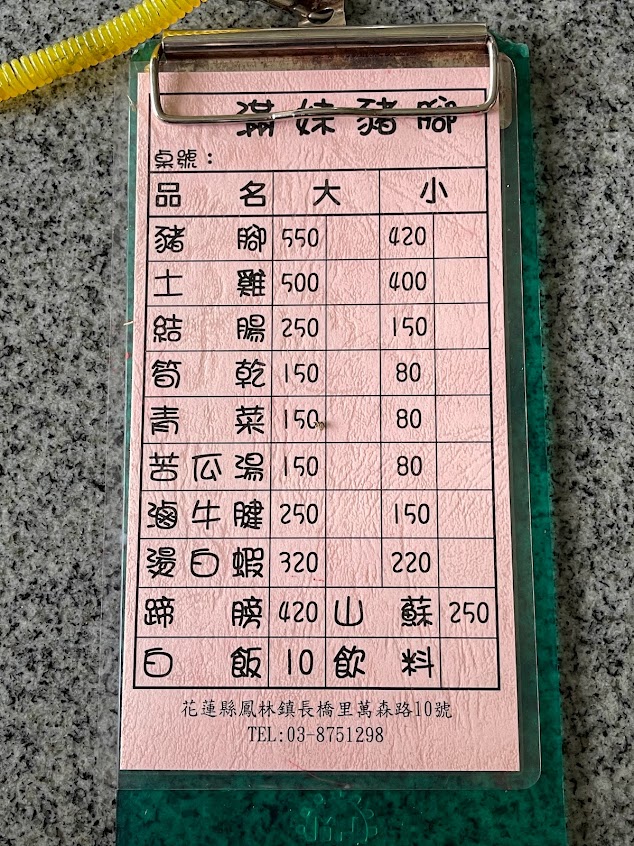 滿妹豬腳
桌號：
品名 大 小
豬腳 550 420
土雞 500 400
結腸 250 150
筍乾 150 80
青菜 150 80
苦瓜湯 150 80
滷牛腱 250 150
燙白蝦 320 220
蹄膀 420 山蘇 250
白飯 10 飲料
花蓮縣鳳林鎮長橋里萬森路10號
TEL:03-8751298